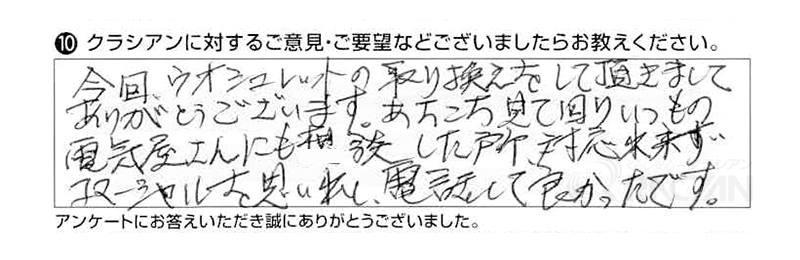 ⑩ クラシアンに対するご意見・ご要望などございましたらお教えください。
今回、ウオシュレットの取り換えをして頂きまして
ありがとうございます。あちこち見て回りいつもの
電気屋さんにも相談した所、対応出来ず
コマーシャルを思い出し、電話して良かったです。
アンケートにお答えいただき誠にありがとうございました。